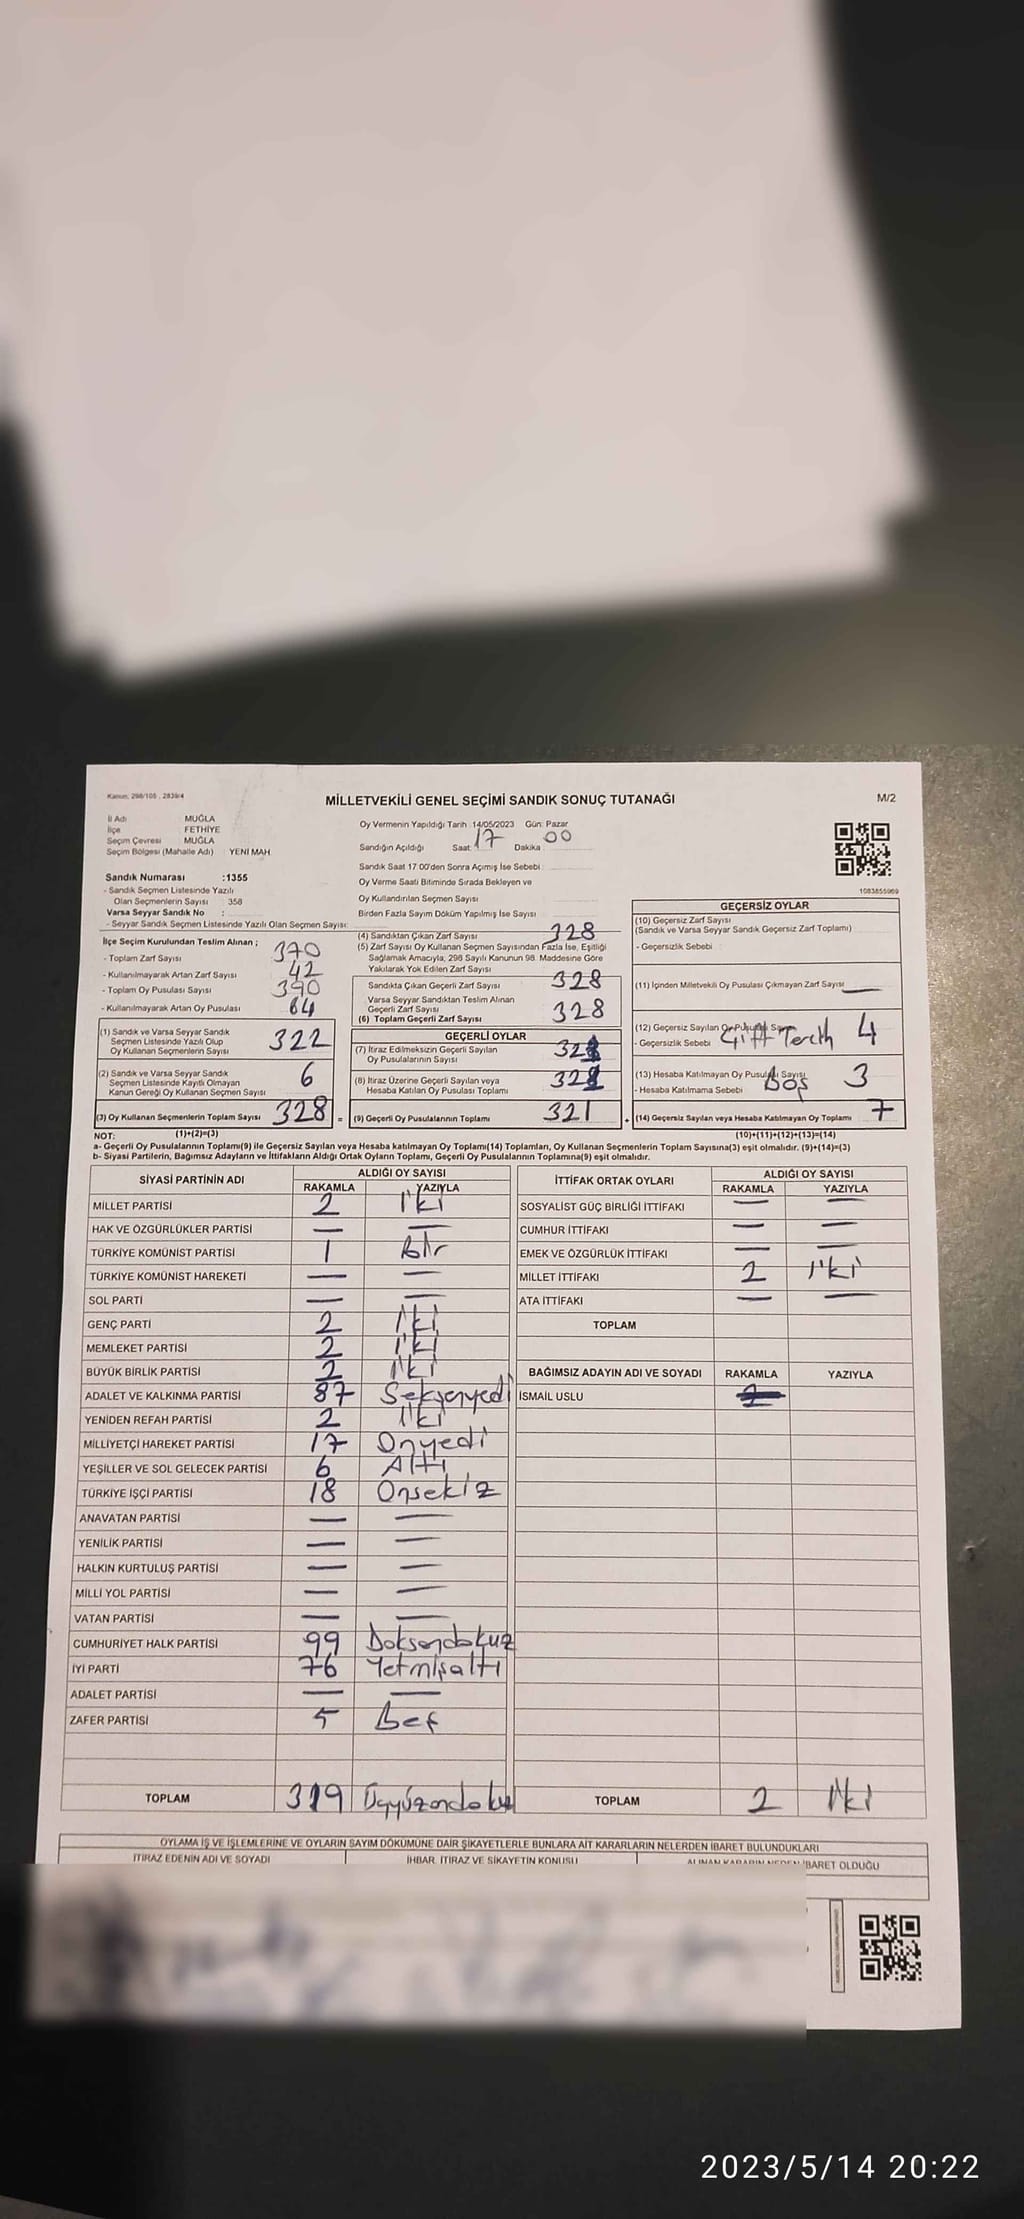 Kanun: 298/105 , 2839/4
MİLLETVEKİLİ GENEL SEÇİMİ SANDIK SONUÇ TUTANAĞI
M/2
İl Adı MUĞLA
İlçe FETHİYE
Seçim Çevresi MUĞLA
Seçim Bölgesi (Mahalle Adı) YENİ MAH.
Sandık Numarası :1355
- Sandık Seçmen Listesinde Yazılı
Olan Seçmenlerin Sayısı : 358
Varsa Seyyar Sandık No :
- Seyyar Sandık Seçmen Listesinde Yazılı Olan Seçmen Sayısı:
Oy Vermenin Yapıldığı Tarih :14/05/2023 Gün: Pazar
Sandığın Açıldığı Saat: 17 Dakika 00
Sandık Saat 17:00'den Sonra Açımış İse Sebebi :
Oy Verme Saati Bitiminde Sırada Bekleyen ve
Oy Kullandırılan Seçmen Sayısı
Birden Fazla Sayım Döküm Yapılmış İse Sayısı
1083855969
İlçe Seçim Kurulundan Teslim Alınan ;
- Toplam Zarf Sayısı 370
- Kullanılmayarak Artan Zarf Sayısı 42
- Toplam Oy Pusulası Sayısı 390
- Kullanılmayarak Artan Oy Pusulası 64
(1) Sandık ve Varsa Seyyar Sandık
Seçmen Listesinde Yazılı Olup
Oy Kullanan Seçmenlerin Sayısı 322
(2) Sandık ve Varsa Seyyar Sandık
Seçmen Listesinde Kayıtlı Olmayan
Kanun Gereği Oy Kullanan Seçmen Sayısı 6
(3) Oy Kullanan Seçmenlerin Toplam Sayısı 328 =
(1)+(2)=(3)
(4) Sandıktan Çıkan Zarf Sayısı 328
(5) Zarf Sayısı Oy Kullanan Seçmen Sayısından Fazla İse, Eşitliği
Sağlamak Amacıyla, 298 Sayılı Kanunun 98. Maddesine Göre
Yakılarak Yok Edilen Zarf Sayısı
Sandıkta Çıkan Geçerli Zarf Sayısı 328
Varsa Seyyar Sandıktan Teslim Alınan
Geçerli Zarf Sayısı
(6) Toplam Geçerli Zarf Sayısı 328
GEÇERLİ OYLAR
(7) İtiraz Edilmeksizin Geçerli Sayılan
Oy Pusulalarının Sayısı 321
(8) İtiraz Üzerine Geçerli Sayılan veya
Hesaba Katılan Oy Pusulası Toplamı 321
(9) Geçerli Oy Pusulalarının Toplamı 321 +
GEÇERSİZ OYLAR
(10) Geçersiz Zarf Sayısı
(Sandık ve Varsa Seyyar Sandık Geçersiz Zarf Toplamı)
- Geçersizlik Sebebi
(11) İçinden Milletvekili Oy Pusulası Çıkmayan Zarf Sayısı —
(12) Geçersiz Sayılan Oy Pusulası Sayısı 4
- Geçersizlik Sebebi Çift Tercih
(13) Hesaba Katılmayan Oy Pusulası Sayısı 3
- Hesaba Katılmama Sebebi Boş
(14) Geçersiz Sayılan veya Hesaba Katılmayan Oy Toplamı 7
(10)+(11)+(12)+(13)=(14)
NOT:
a- Geçerli Oy Pusulalarının Toplamı(9) ile Geçersiz Sayılan veya Hesaba katılmayan Oy Toplamı(14) Toplamları, Oy Kullanan Seçmenlerin Toplam Sayısına(3) eşit olmalıdır. (9)+(14)=(3)
b- Siyasi Partilerin, Bağımsız Adayların ve İttifakların Aldığı Ortak Oyların Toplamı, Geçerli Oy Pusulalarının Toplamına(9) eşit olmalıdır.
SİYASİ PARTİNİN ADI ALDIĞI OY SAYISI
RAKAMLA YAZIYLA
MİLLET PARTİSİ 2 İki
HAK VE ÖZGÜRLÜKLER PARTİSİ — —
TÜRKİYE KOMÜNİST PARTİSİ 1 Bir
TÜRKİYE KOMÜNİST HAREKETİ — —
SOL PARTİ — —
GENÇ PARTİ 2 İki
MEMLEKET PARTİSİ 2 İki
BÜYÜK BİRLİK PARTİSİ 2 İki
ADALET VE KALKINMA PARTİSİ 87 Seksenyedi
YENİDEN REFAH PARTİSİ 2 İki
MİLLİYETÇİ HAREKET PARTİSİ 17 Onyedi
YEŞİLLER VE SOL GELECEK PARTİSİ 6 Altı
TÜRKİYE İŞÇİ PARTİSİ 18 Onsekiz
ANAVATAN PARTİSİ — —
YENİLİK PARTİSİ — —
HALKIN KURTULUŞ PARTİSİ — —
MİLLİ YOL PARTİSİ — —
VATAN PARTİSİ — —
CUMHURİYET HALK PARTİSİ 99 Doksandokuz
İYİ PARTİ 76 Yetmişaltı
ADALET PARTİSİ — —
ZAFER PARTİSİ 5 Beş
TOPLAM 319 Üçyüzondokuz
İTTİFAK ORTAK OYLARI ALDIĞI OY SAYISI
RAKAMLA YAZIYLA
SOSYALİST GÜÇ BİRLİĞİ İTTİFAKI — —
CUMHUR İTTİFAKI — —
EMEK VE ÖZGÜRLÜK İTTİFAKI — —
MİLLET İTTİFAKI 2 İki
ATA İTTİFAKI — —
TOPLAM
BAĞIMSIZ ADAYIN ADI VE SOYADI RAKAMLA YAZIYLA
İSMAİL USLU
TOPLAM 2 İki
OYLAMA İŞ VE İŞLEMLERİNE VE OYLARIN SAYIM DÖKÜMÜNE DAİR ŞİKAYETLERLE BUNLARA AİT KARARLARIN NELERDEN İBARET BULUNDUKLARI
İTİRAZ EDENİN ADI VE SOYADI İHBAR, İTİRAZ VE ŞİKAYETİN KONUSU ALINAN KARARIN NEDEN İBARET OLDUĞU
2023/5/14 20:22